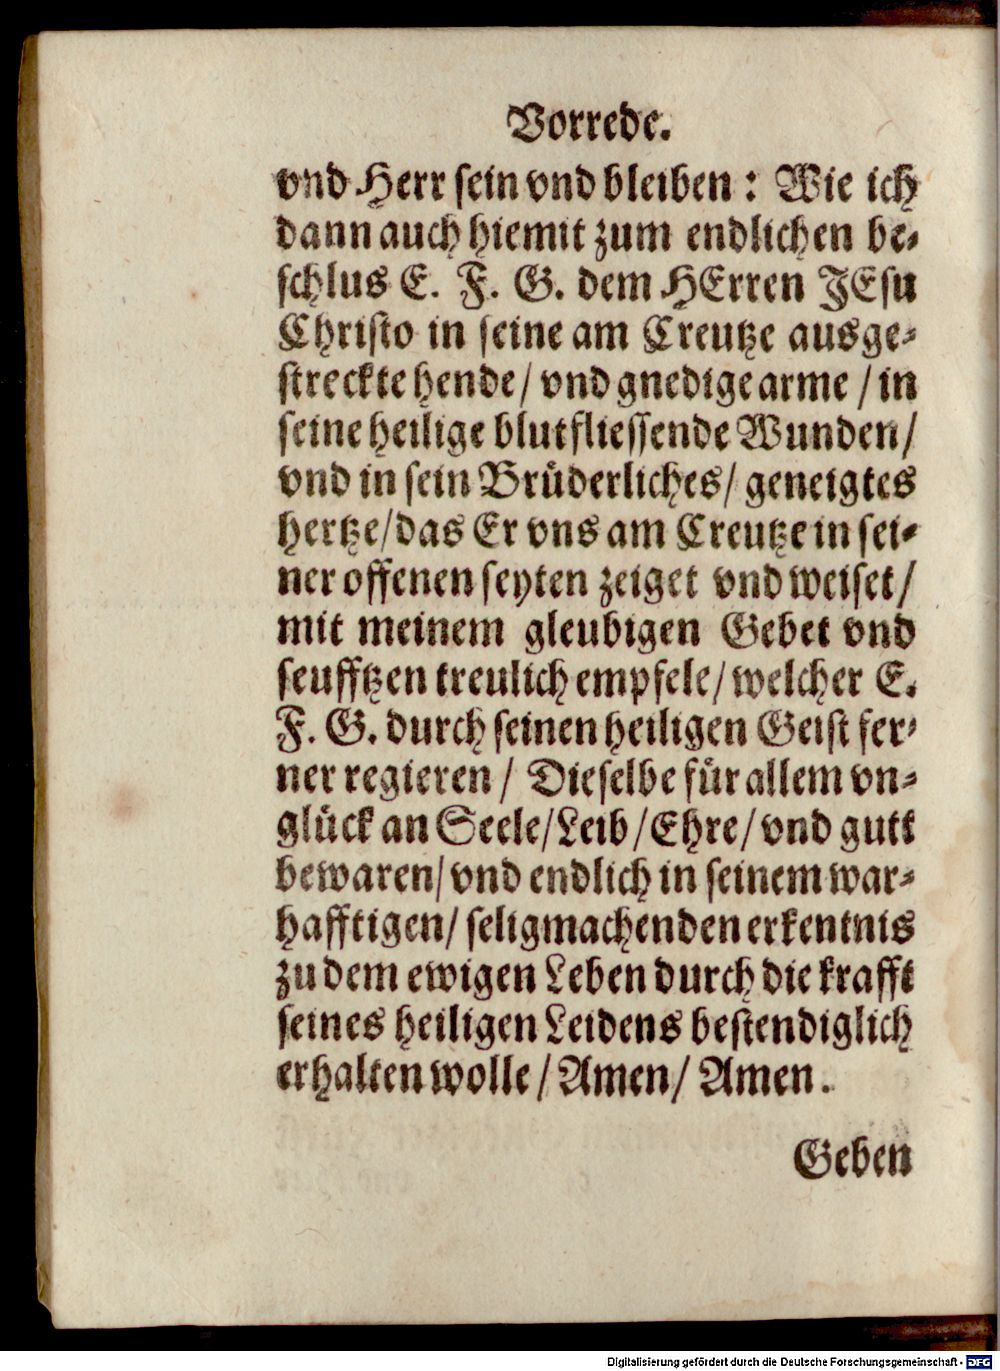 Vorrede.
vnd Herr sein vnd bleiben : Wie ich
dann auch hiemit zum endlichen be-
schlus E. F. G. dem HErren JEsu
Christo in seine am Creutze ausge-
streckte hende/ vnd gnedige arme / in
seine heilige blutfliessende Wunden/
vnd in sein Brüderliches/ geneigtes
hertze/das Er vns am Creutze in sei-
ner offenen seyten zeiget vnd weiset/
mit meinem gleubigen Gebet vnd
seufftzen treulich empfele/ welcher E.
F. G. durch seinen heiligen Geist fer-
ner regieren / Dieselbe für allem vn-
glück an Seele/Leib/Ehre/ vnd gutt
bewaren/ vnd endlich in seinem war-
hafftigen/ seligmachenden erkentnis
zu dem ewigen Leben durch die krafft
seines heiligen Leidens bestendiglich
erhalten wolle / Amen/ Amen.
Geben
Digitalisierung gefördert durch die Deutsche Forschungsgemeinschaft - DFG